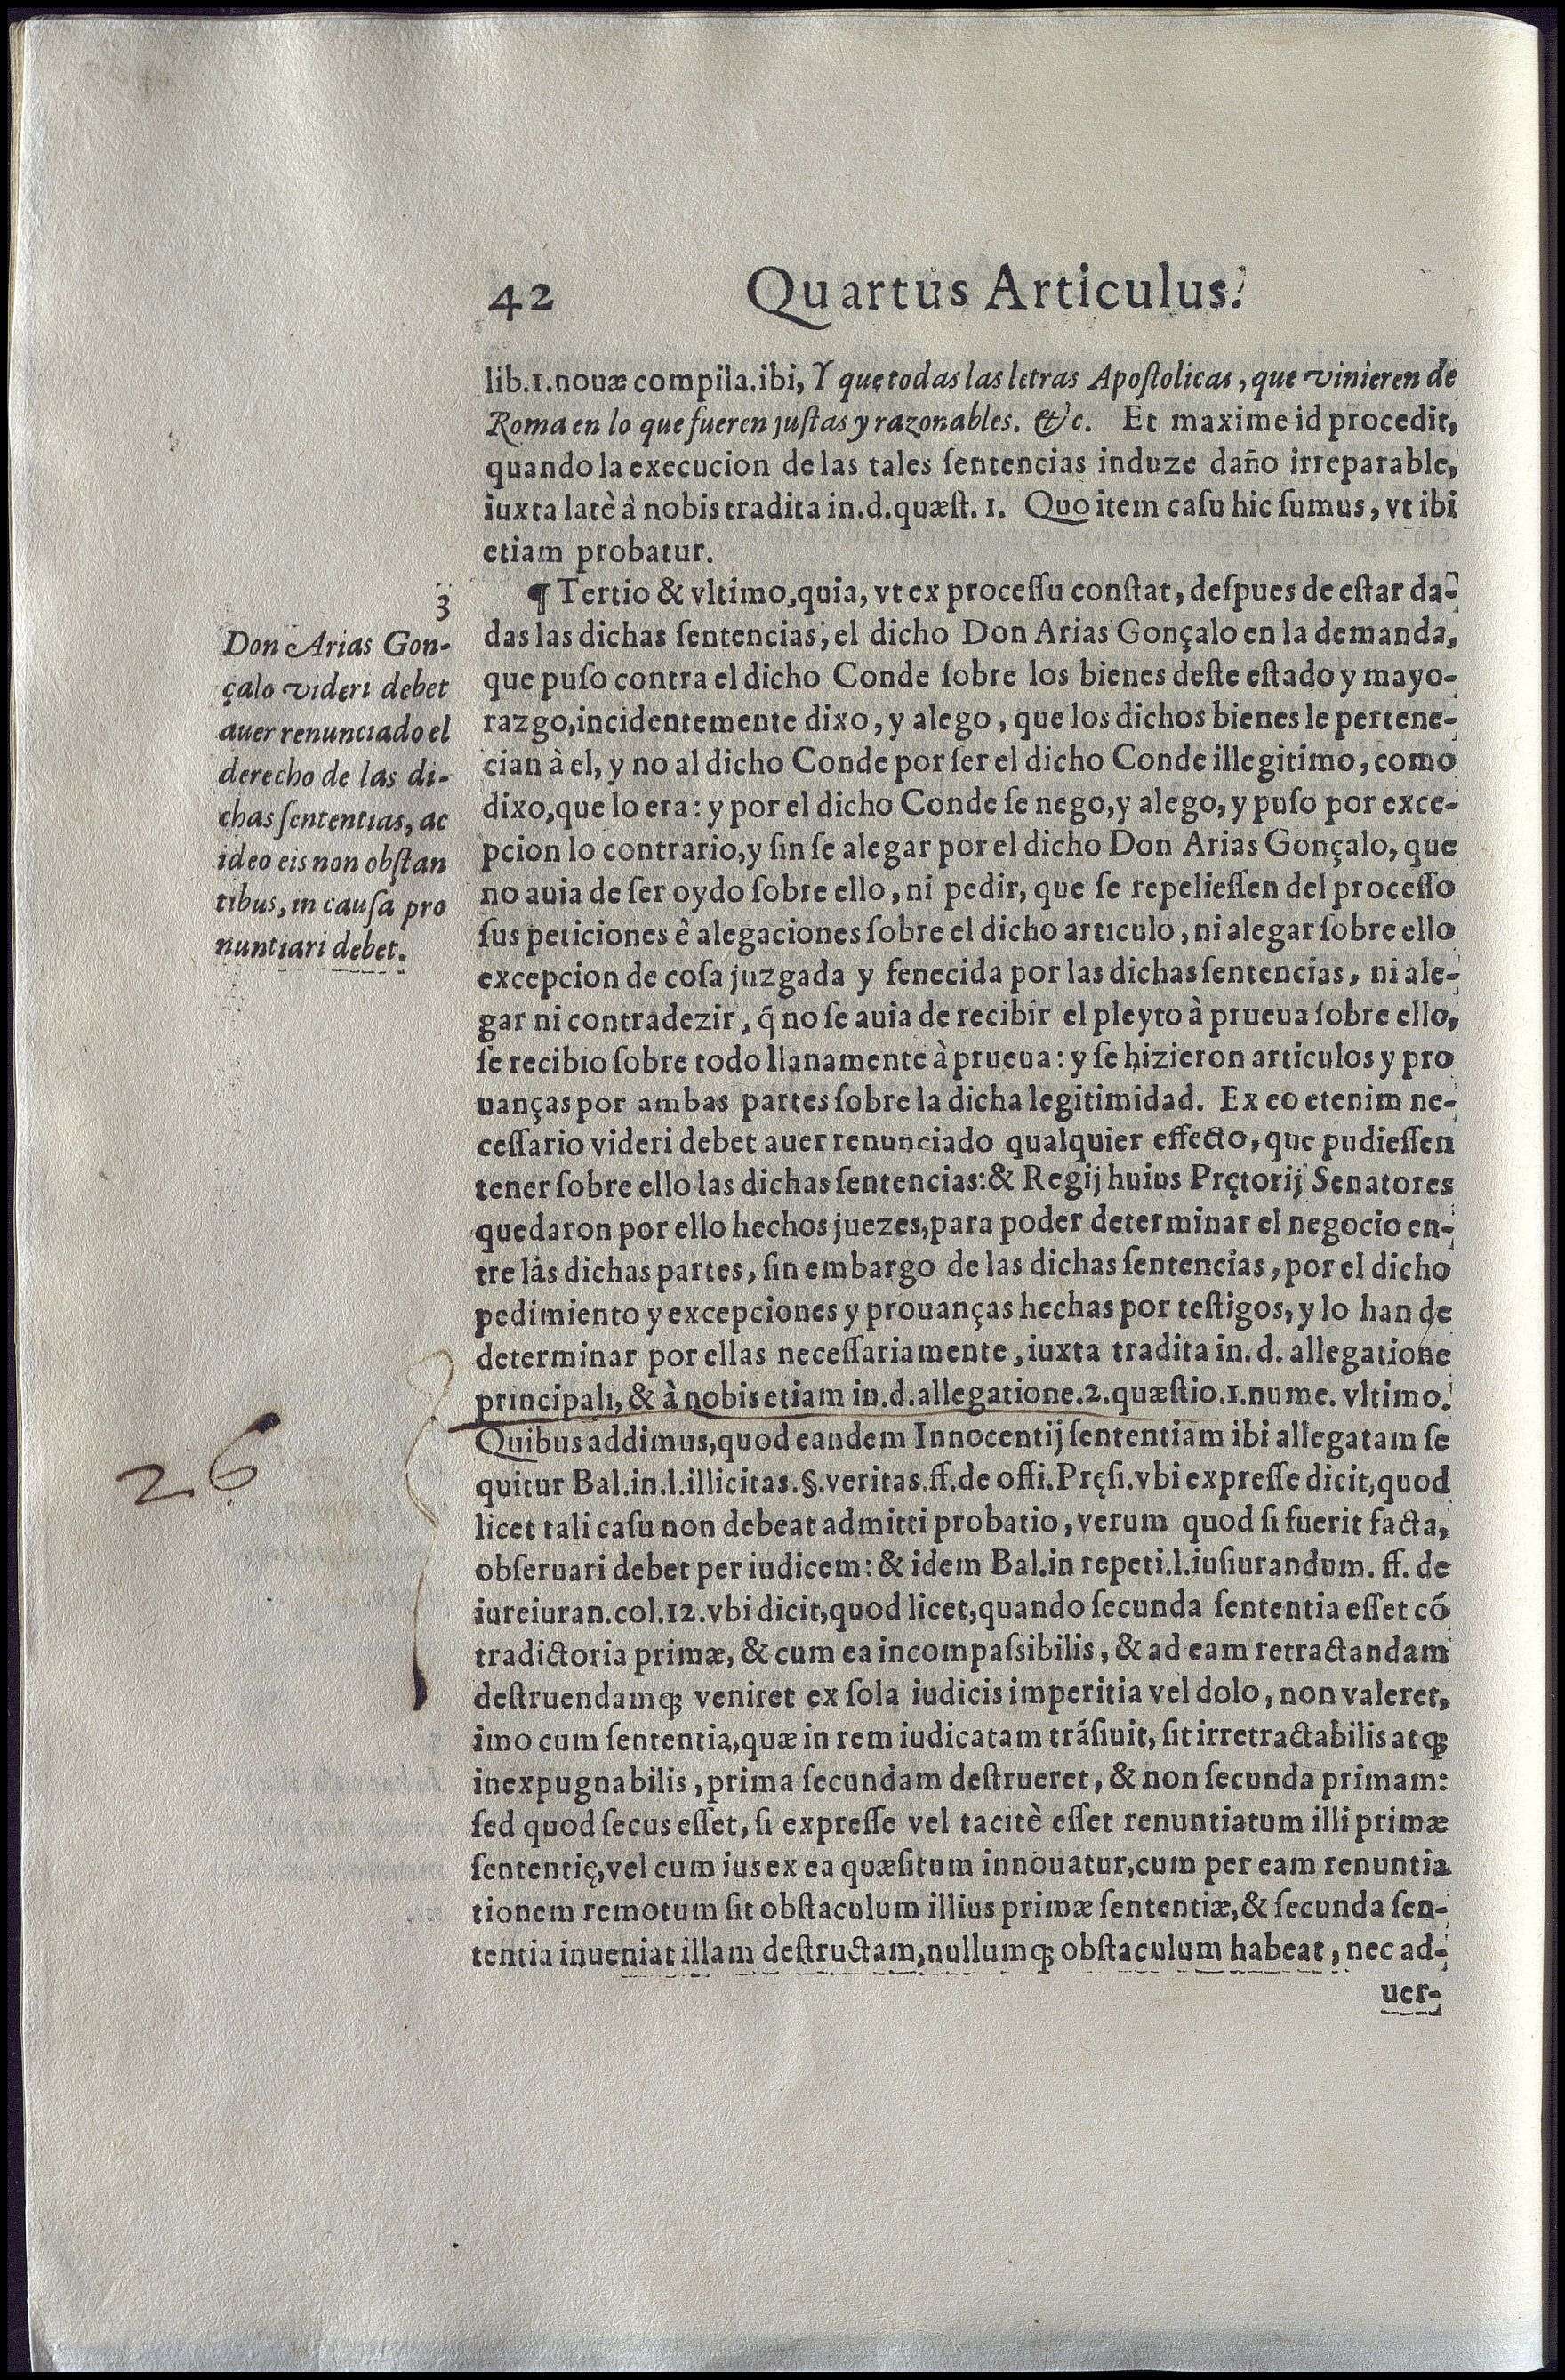 42 Quartus Articulus.
lib.1.nouæ compila.ibi, Y que todas las letras Apoſtolicas, que vinieren de
Roma en lo que fueren juſtas y razonables. &c. Et maxime id procedit,
quando la execucion de las tales ſentencias induze daño irreparable,
iuxta latè à nobis tradita in.d.quæſt. 1. Quo item caſu hic ſumus, vt ibi
etiam probatur.
3
Don Arias Gon-
çalo videri debet
auer renunciado el
derecho de las di-
chas ſententias, ac
ideo eis non obſtan
tibus, in cauſa pro
nuntiari debet.
¶ Tertio & vltimo, quia, vt ex proceſſu conſtat, deſpues de eſtar da-
das las dichas ſentencias, el dicho Don Arias Gonçalo en la demanda,
que puſo contra el dicho Conde ſobre los bienes deſte eſtado y mayo-
razgo, incidentemente dixo, y alego, que los dichos bienes le pertene-
cian à el, y no al dicho Conde por ſer el dicho Conde illegitimo, como
dixo, que lo era: y por el dicho Conde ſe nego, y alego, y puſo por exce-
pcion lo contrario, y ſin ſe alegar por el dicho Don Arias Gonçalo, que
no auia de ſer oydo ſobre ello, ni pedir, que ſe repelieſſen del proceſſo
ſus peticiones è alegaciones ſobre el dicho articulo, ni alegar ſobre ello
excepcion de coſa juzgada y fenecida por las dichas ſentencias, ni ale-
gar ni contradezir, q̃ no ſe auia de recibir el pleyto à prueua ſobre ello,
ſe recibio ſobre todo llanamente à prueua: y ſe hizieron articulos y pro
uanças por ambas partes ſobre la dicha legitimidad. Ex eo etenim ne-
ceſſario videri debet auer renunciado qualquier effecto, que pudieſſen
tener ſobre ello las dichas ſentencias: & Regij huius Prętorij Senatores
quedaron por ello hechos juezes, para poder determinar el negocio en-
tre las dichas partes, ſin embargo de las dichas ſentencias, por el dicho
pedimiento y excepciones y prouanças hechas por teſtigos, y lo han de
determinar por ellas neceſſariamente, iuxta tradita in. d. allegatione
principali, & à nobis etiam in.d.allegatione.2.quæſtio.1.nume. vltimo.
26
Quibus addimus, quod eandem Innocentij ſententiam ibi allegatam ſe
quitur Bal.in.l.illicitas.§.veritas.ff.de offi.Pręſi.vbi expreſſe dicit, quod
licet tali caſu non debeat admitti probatio, verum quod ſi fuerit facta,
obſeruari debet per iudicem: & idem Bal.in repeti.l.iuſiurandum. ff. de
iureiuran.col.12.vbi dicit, quod licet, quando ſecunda ſententia eſſet cō
tradictoria primæ, & cum ea incompaſsibilis, & ad eam retractandam
deſtruendamq; veniret ex ſola iudicis imperitia vel dolo, non valeret,
imo cum ſententia, quæ in rem iudicatam trāſiuit, ſit irretractabilis atq;
inexpugnabilis, prima ſecundam deſtrueret, & non ſecunda primam:
ſed quod ſecus eſſet, ſi expreſſe vel tacitè eſſet renuntiatum illi primæ
ſententię, vel cum ius ex ea quæſitum innouatur, cum per eam renuntia
tionem remotum ſit obſtaculum illius primæ ſententiæ, & ſecunda ſen-
tentia inueniat illam deſtructam, nullumq; obſtaculum habeat, nec ad-
uer-